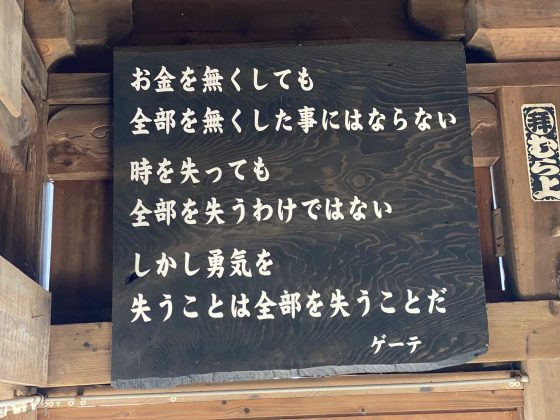 お金を無くしても
全部を無くした事にはならない
時を失っても
全部を失うわけではない
しかし勇気を
失うことは全部を失うことだ
ゲーテ
むら上